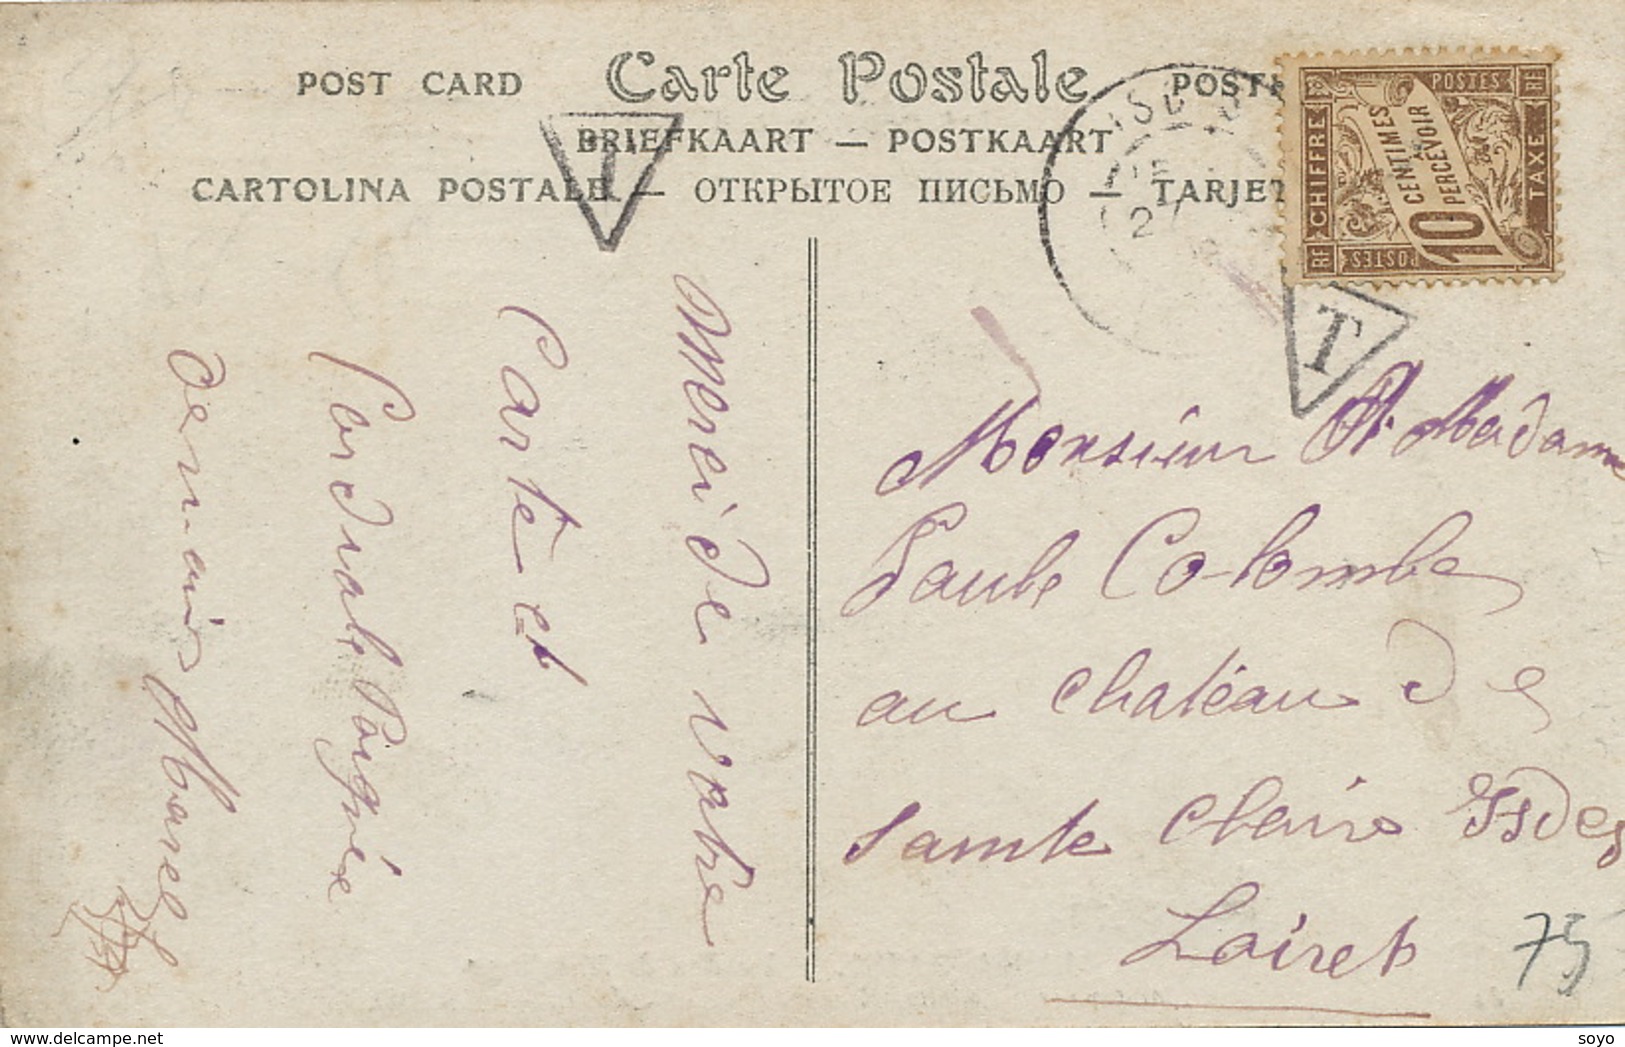 POST CARD Carte Postale POST
BRIEFKAART — POSTKAART
CARTOLINA POSTALE — ОТКРЫТОЕ ПИСЬМО — TARJET
RF CHIFFRE TAXE RF
POSTES
10 CENTIMES À PERCEVOIR
POSTES
T
T
Merci de votre
Carte et
Cordiale Poignée
de mains Marcel
Monsieur & Madame
Paule Colombe
au chateau de
Sainte Claire Isdes
Loiret
75
www.delcampe.net
soyo